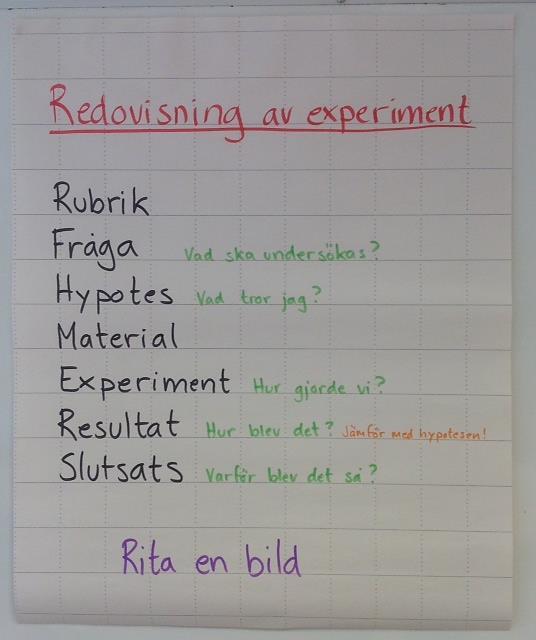 Redovisning av experiment
Rubrik
Fråga Vad ska undersökas?
Hypotes Vad tror jag?
Material
Experiment Hur gjorde vi?
Resultat Hur blev det? Jämför med hypotesen!
Slutsats Varför blev det så?
Rita en bild